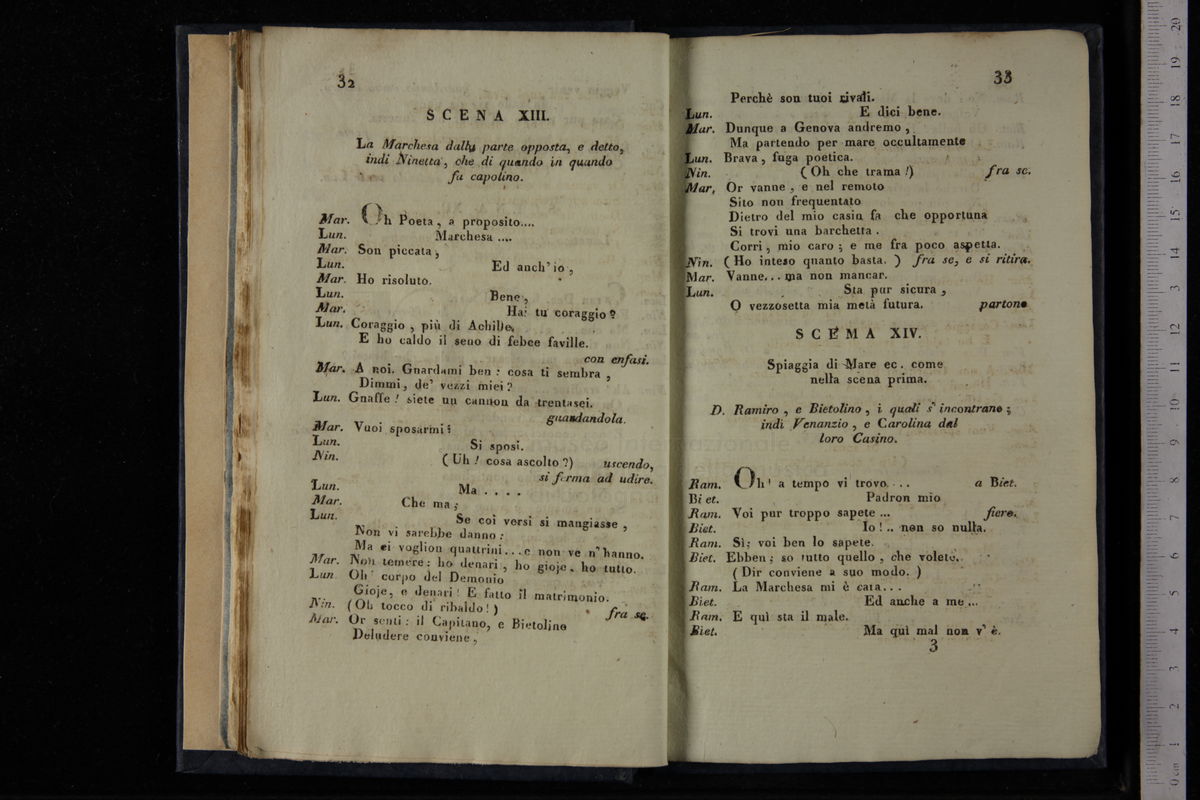 32
SCENA XIII.
La Marchesa dalla parte opposta, e detto,
indi Ninetta, che di quando in quando
fa capolino.
Mar. Oh Poeta, a proposito....
Lun. Marchesa ....
Mar. Son piccata,
Lun. Ed anch'io,
Mar. Ho risoluto.
Lun. Bene,
Mar. Hai tu coraggio?
Lun. Coraggio, più di Achille,
E ho caldo il seno di febee faville.
con enfasi.
Mar. A noi. Guardami ben: cosa ti sembra,
Dimmi, de' vezzi miei?
Lun. Gnaffe! siete un cannon da trentasei.
guardandola.
Mar. Vuoi sposarmi?
Lun. Si sposi.
Nin. (Uh! cosa ascolto?) uscendo,
si ferma ad udire.
Lun. Ma . . . .
Mar. Che ma;
Lun. Se coi versi si mangiasse,
Non vi sarebbe danno:
Ma ei voglion quattrini...e non ve n'hanno.
Mar. Non temere: ho denari, ho gioje, ho tutto.
Lun. Oh corpo del Demonio
Gioje, e denari! E fatto il matrimonio.
Nin. (Oh tocco di ribaldo!) fra se.
Mar. Or senti: il Capitano, e Bietolino
Deludere conviene,
33
Perchè son tuoi rivali.
Lun. E dici bene.
Mar. Dunque a Genova andremo,
Ma partendo per mare occultamente
Lun. Brava, fuga poetica.
Nin. (Oh che trama!) fra se.
Mar, Or vanne, e nel remoto
Sito non frequentato
Dietro del mio casin fa che opportuna
Si trovi una barchetta.
Corri, mio caro; e me fra poco aspetta.
Nin. (Ho inteso quanto basta.) fra se, e si ritira.
Mar. Vanne... ma non mancar.
Lun. Sta pur sicura,
O vezzosetta mia metà futura. partono
SCEMA XIV.
Spiaggia di Mare ec. come
nella scena prima.
D. Ramiro, e Bietolino, i quali s'incontrano;
indi Venanzio, e Carolina dal
loro Casino.
Ram. Oh! a tempo vi trovo.... a Biet.
Biet. Padron mio
Ram. Voi pur troppo sapete ... fiero.
Biet. Io!.. non so nulla.
Ram. Sì; voi ben lo sapete.
Biet. Ebben; so tutto quello, che volete.
(Dir conviene a suo modo.)
Ram. La Marchesa mi è cara...
Biet. Ed anche a me...
Ram. E quì sta il male.
Biet. Ma quì mal non v'è.
3